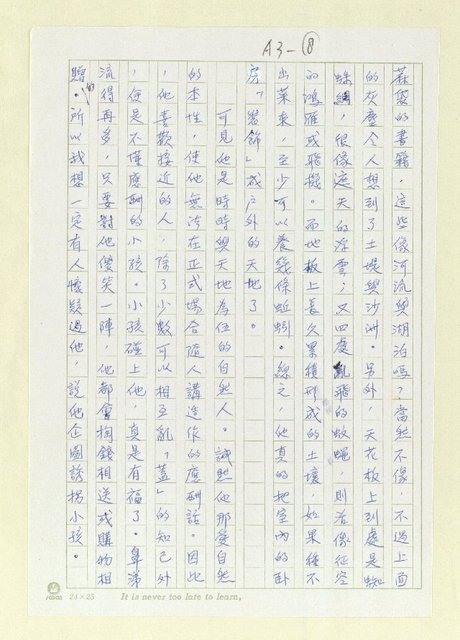 A3-⑧
蔴袋的書籍，這些像河流與湖泊嗎？當然不像，不過上面
的灰塵令人想到了土堤與沙洲。另外，天花板上到處是蜘
蛛網，很像遮天的浮雲；又四處亂飛的蚊蠅，則若像征空
的鴻雁或飛機。而地板上長久累積形成的土壤，如果種不
出菜來，至少可以養幾條蚯蚓。總之，他真的把室內的卧
房，「裝飾」成戶外的天地了。
可見他是時時與天地為伍的自然人。誠然他那愛自然
的本性，使他無法在正式場合隨人講造作的應酬話。因此
，他喜歡接近的人，除了少數可以相互亂「蓋」的知己外
，便是不懂應酬的小孩。小孩碰上他，真是有福了。鼻涕
流得再多，只要對他傻笑一陣，他都會掏錢相送或購物相
贈的。所以我想一定有人懷疑過他，說他企圖誘拐小孩。
24×25 It is never too late to learn,